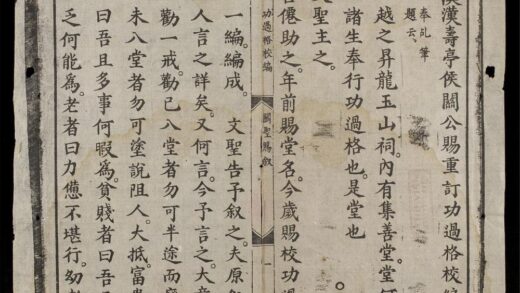 漢壽亭侯關公賜重訂功過格校
奉乩筆
題云
越之昇龍玉山祠內有集善堂。堂
諸生奉行功過格也。是堂也
文聖主之。
僊助之。年前賜堂名。今歲賜校功過
功過格校編
關聖賜敘
一
一編。編成。 文聖告予敘之。夫原
人言之詳矣。又何言。今予言之。大意
勸一戒。勸已入堂者。勿可半途而廢
未入堂者。勿可塗說阻人。大抵富
曰吾且多事。何暇為。貧賤者曰吾
乏何能為。老者曰力憊不堪行。幼